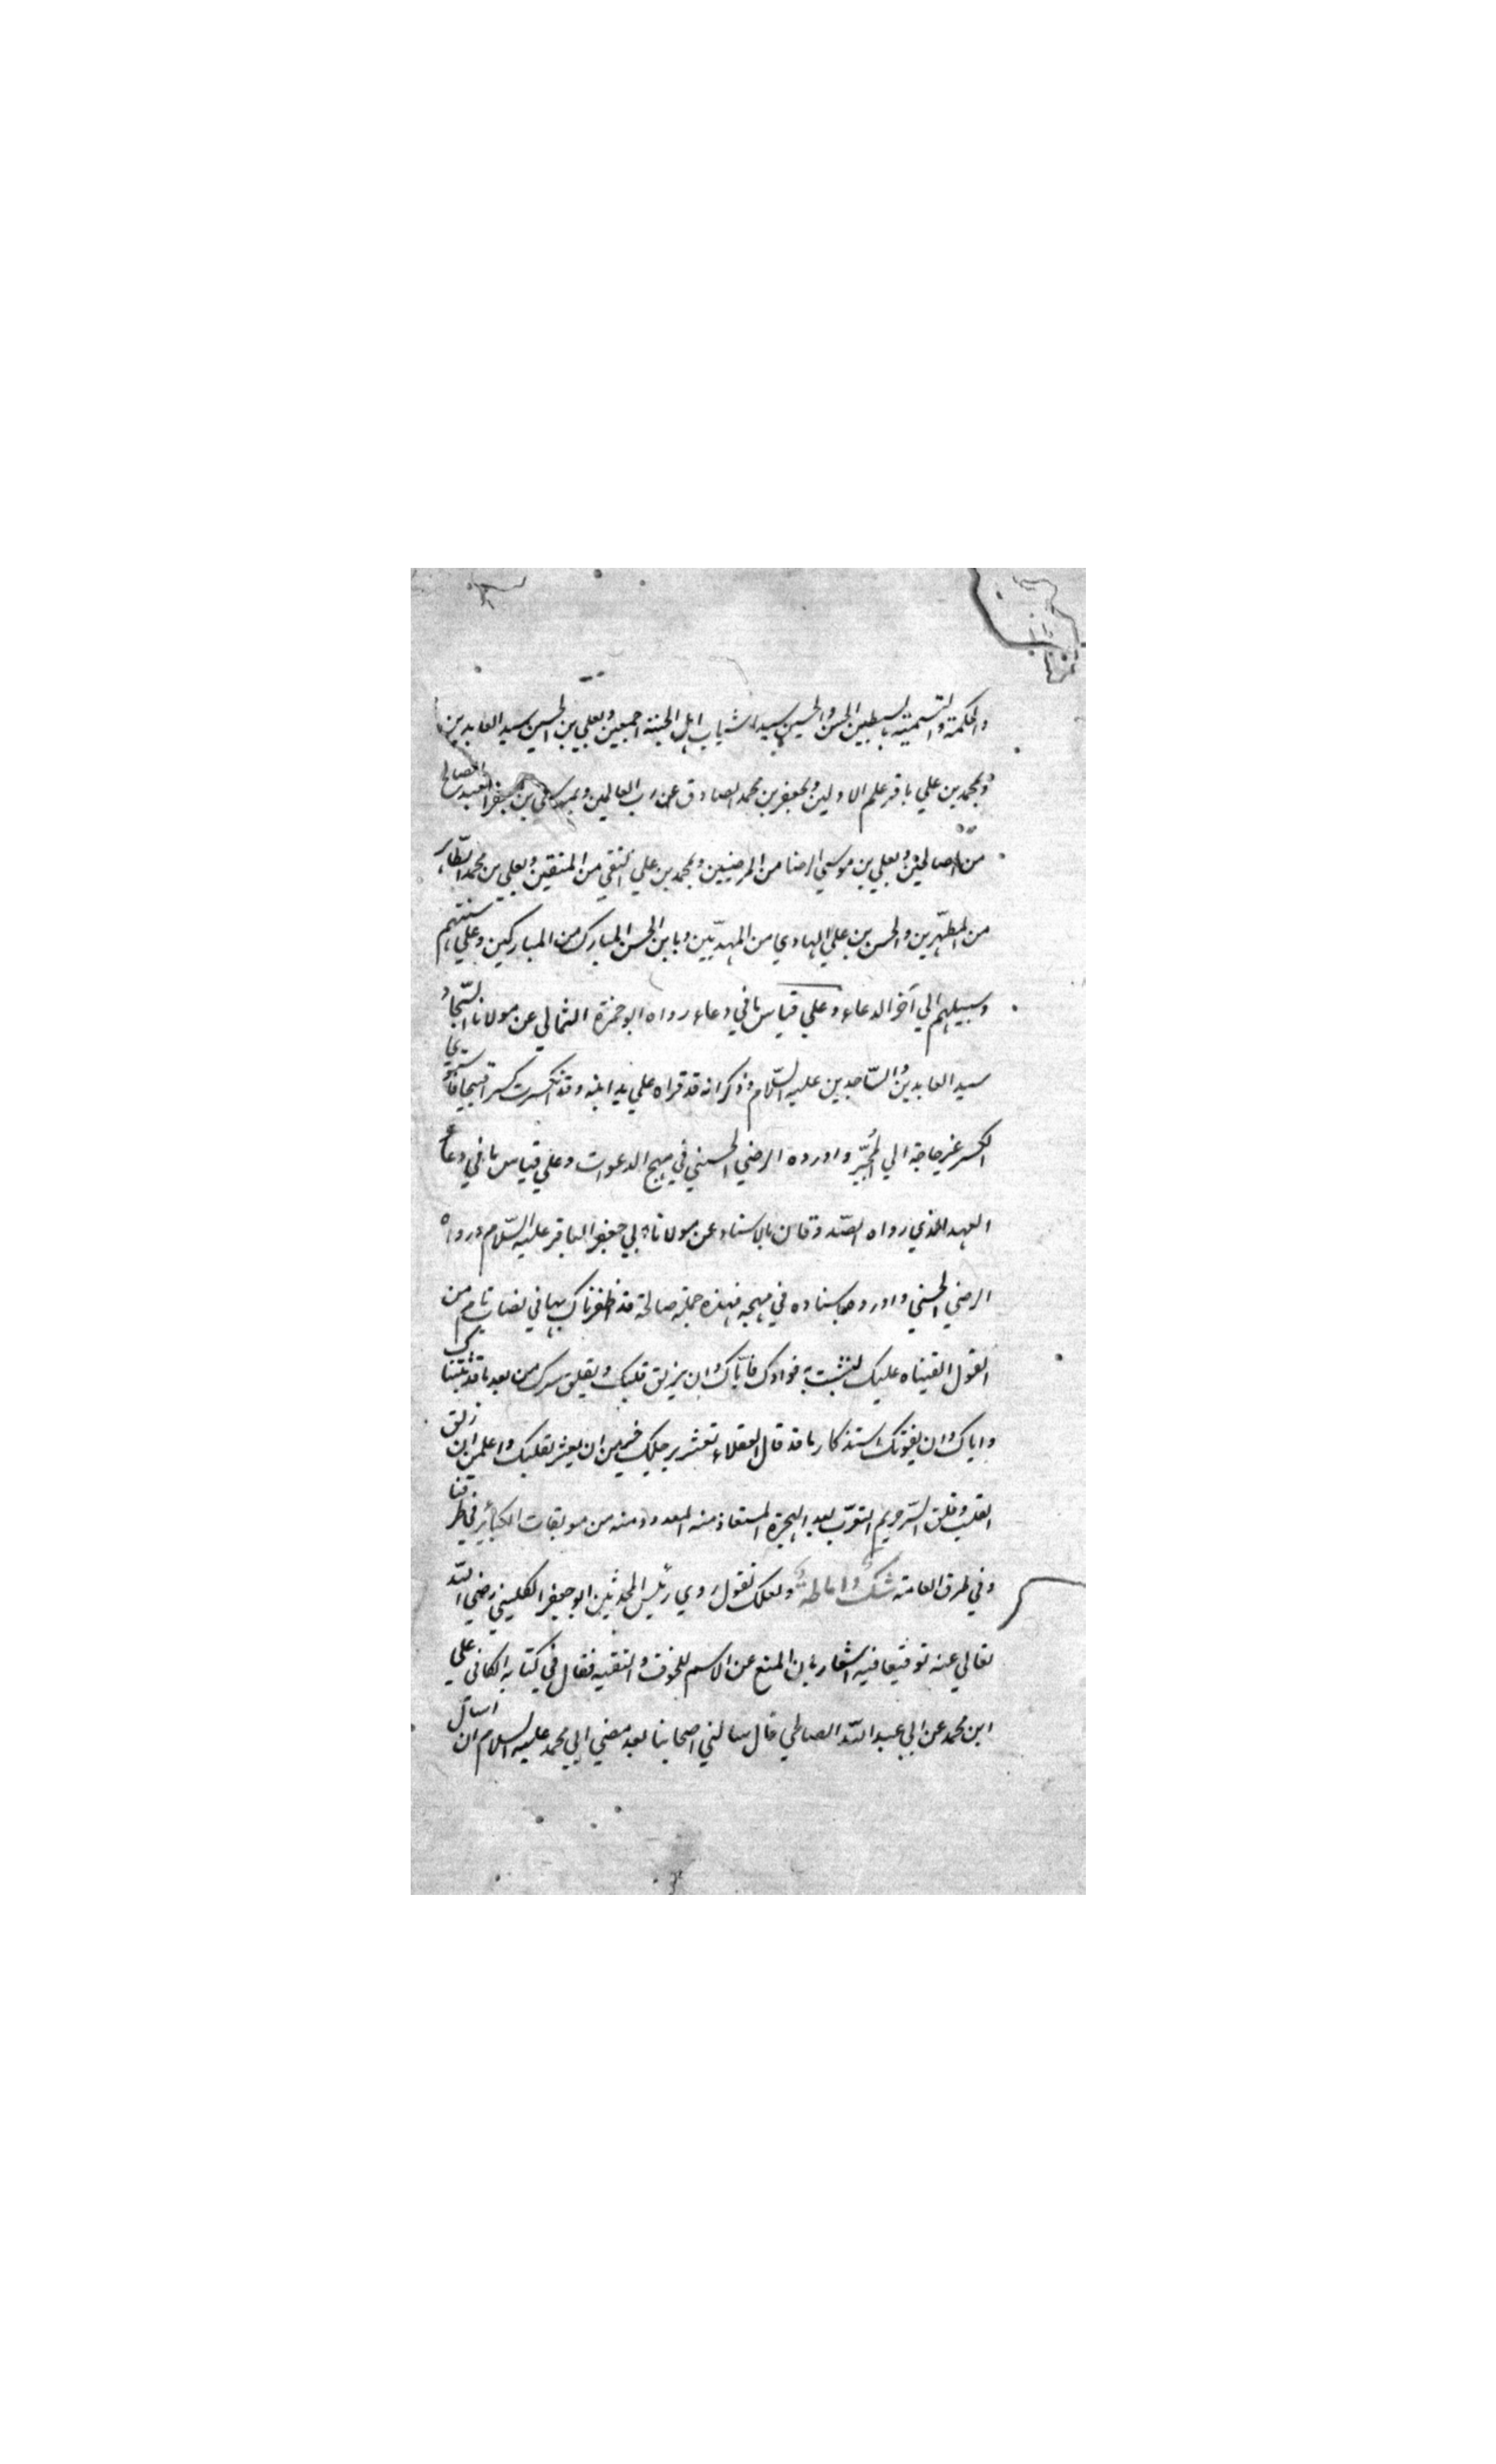 والحكمة والتسمية بالسبطين الحسن والحسين سيدا شباب اهل الجنة اجمعين وبعلي بن الحسين سيد العابدين
وبمحمد بن علي باقر علم الاولين وبجعفر بن محمد الصادق عن رب العالمين وبموسى بن جعفر العبد الصالح
من الصالحين وبعلي بن موسي الرضا من المرضيين وبمحمد بن علي التقي من المتقين وبعلي بن محمد الطاهر
من المطهرين والحسن بن علي الهادي من المهديين وبابن الحسن المبارك من المباركين وعلي سنتهم
وسبيلهم الي آخر الدعاء وعلي قياس ما في دعاء رواه ابو حمزة الثمالي عن مولانا السجاد
سيد العابدين والساجدين عليه السلام وذكر انه قد قراه علي يد ابنه وقد انكسرت كسر اقبيحا فاستوي
الكسر غير حاجة الي المجبّر واورده الرضي الحسيني في مهج الدعوات وعلي قياس ما في دعاء
العهد الذي رواه الصدوقان بالاسناد عن مولانا ابي جعفر الباقر عليه السلام ورواه
الرضي الحسني واورده باسناده في مهجه فهذه جملة صالحة قد ظفرناك بها في نصاب تام من
القول القيناه عليك لنثبت به فوادك فاياك وان يزلق قلبك ويقلق سرك من بعد ما قد ثبتناك
واياك وان يفوتك استذكار ما قد قال العقلاء تعثر برجليك خير من ان يعثر بقلبك واعلمن ان زلق
القلب وقلق السر حريم التعرب بعد الهجرة المستعاذ منه المعدود منه من موبقات الكبائر في طرقنا
وفي طرق العامة شك واماطة ولعلك تقول روي رئيس المحدثين ابو جعفر الكليني رضي الله
تعالي عنه توقيعا فيه اشعار بان المنع عن الاسم للخوف والتقيه فقال في كتابه الكافي علي
ابن محمد عن ابي عبد الله الصالحي قال سالني اصحابنا بعد مضي ابي محمد عليه السلام ان اسال